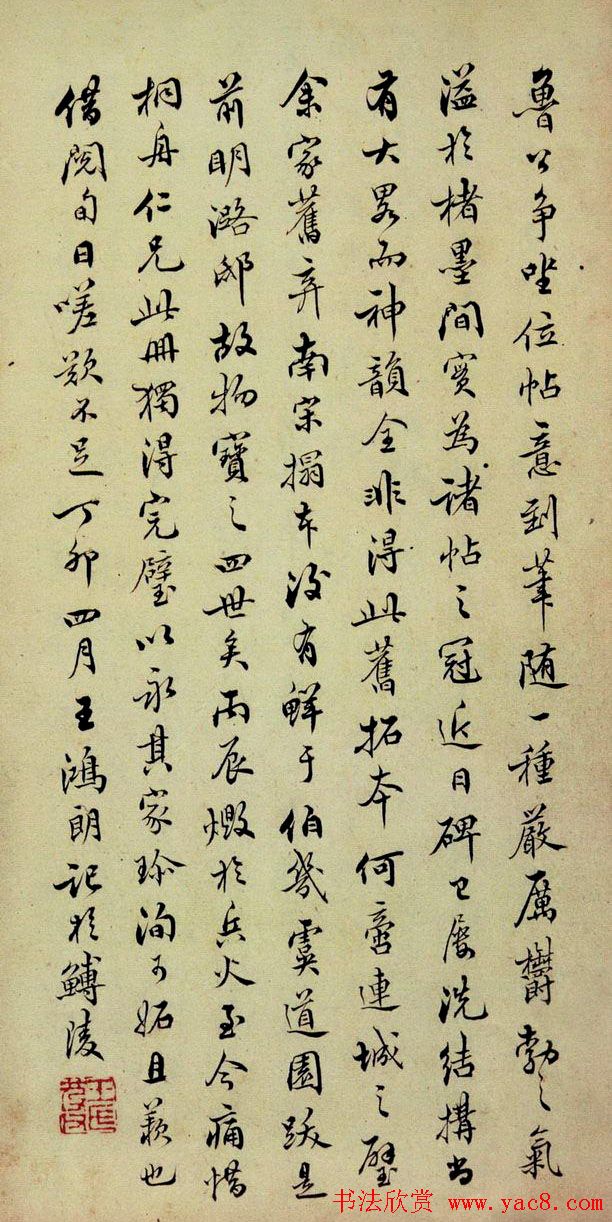 魯公爭坐位帖意到筆隨一種嚴厲鬱勃之氣
溢於楮墨間實為諸帖之冠近日碑已屡洗結搆尚
有大畧而神韻全非得此舊拓本何啻連城之璧
余家舊弆南宋搨本後有鮮于伯幾虞道園跋是
前明潞邸故物寶之四世矣丙辰燬於兵火至今痛惜
桐舟仁兄此冊獨得完璧以永其家珍洵可妬且羨也
借閱旬日嗟歎不足丁卯四月王鴻朗記於鱄陵
书法欣赏 www.yac8.com